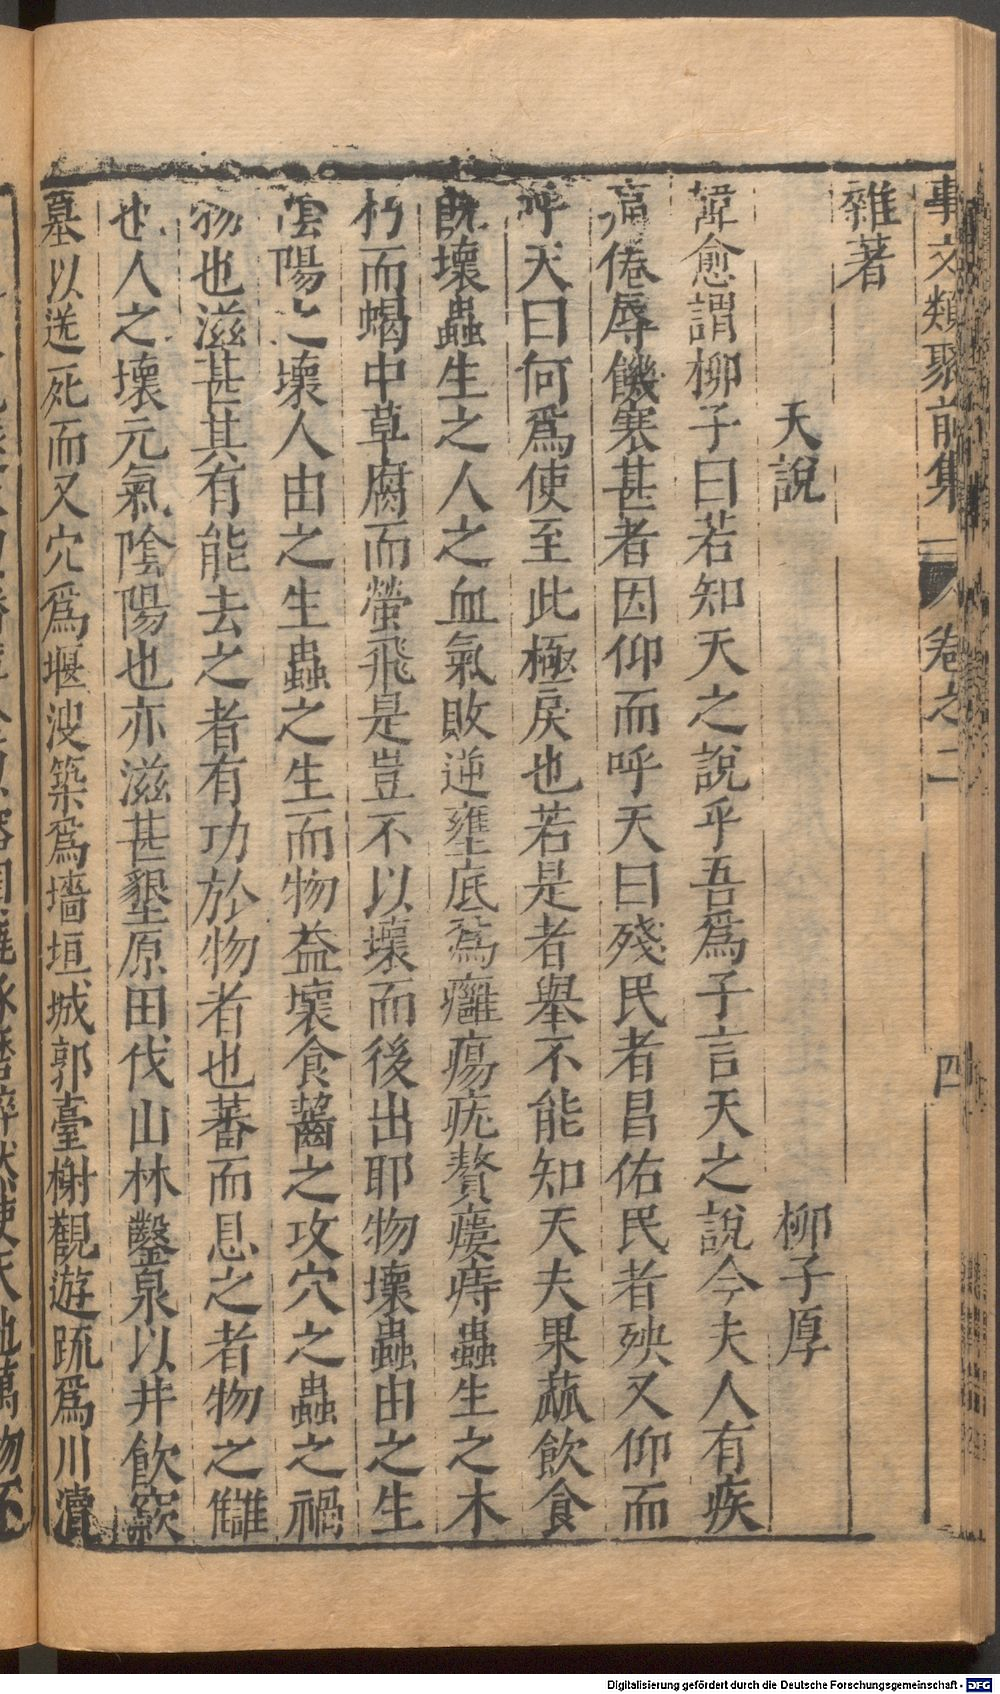 事文類聚前集 卷之二 四
雜著
天說 柳子厚
韓愈謂柳子曰若知天之說乎吾爲子言天之說今夫人有疾
痛倦辱饑寒甚者因仰而呼天曰殘民者昌佑民者殃又仰而
呼天曰何爲使至此極戾也若是者舉不能知天夫果蓏飲食
旣壞蟲生之人之血氣敗逆壅底爲癰瘍疣贅瘻痔蟲生之木
朽而蝎中草腐而螢飛是豈不以壞而後出耶物壞蟲由之生
陰陽之壞人由之生蟲之生而物益壞食齧之攻穴之蟲之禍
物也滋甚其有能去之者有功於物者也蕃而息之者物之讎
也人之壞元氣陰陽也亦滋甚墾原田伐山林鑿泉以井飲窾
墓以送死而又穴爲堰溲築爲墻垣城郭臺榭觀遊疏爲川瀆
Digitalisierung gefördert durch die Deutsche Forschungsgemeinschaft - DFG